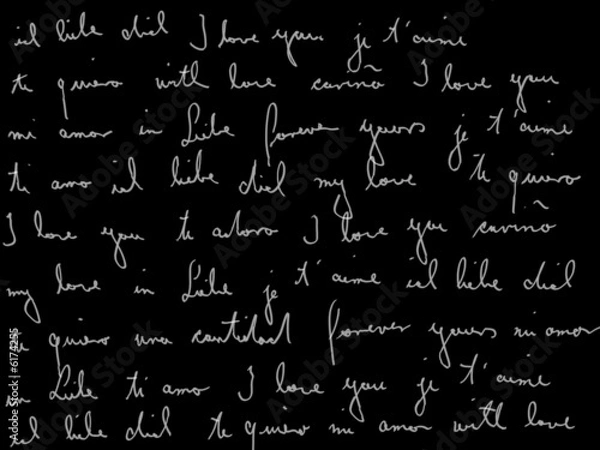 ich liebe dich I love you je t'aime
te quiero with love cariño I love you
mi amor in Liebe forever yours je t'aime
ti amo ich liebe dich my love te quiero
I love you te adoro I love you cariño
my love in Liebe je t'aime ich liebe dich
te quiero una cantidad forever yours mi amor
in Liebe ti amo I love you je t'aime
ich liebe dich te quiero mi amor with love
Adobe Stock | #6174295